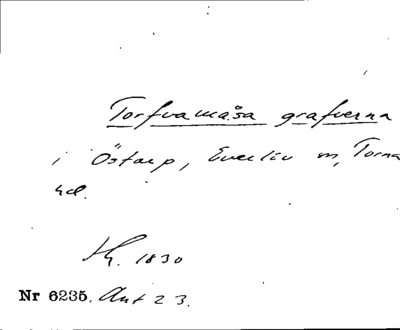 Torfvamåsa grafverna
i Östarp, Everlöv m, Torna
hd.
Hg. 1830
Nr 6235. Ant 23.